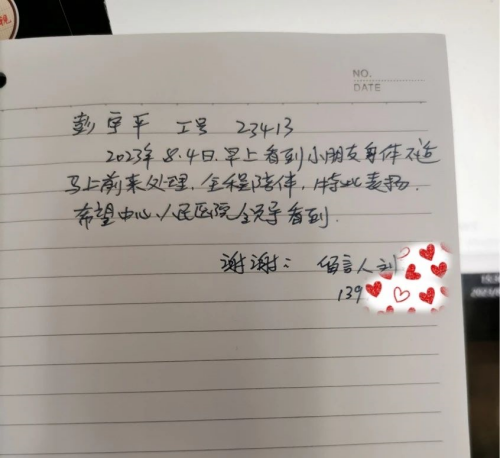 NO.
DATE
彭宇平 工号 23413
2023年8.4日.早上看到小朋友身体不适
马上前来处理,全程陪伴,特此表扬.
希望中心人民医院全院看到.
谢谢: 留言人刘
139